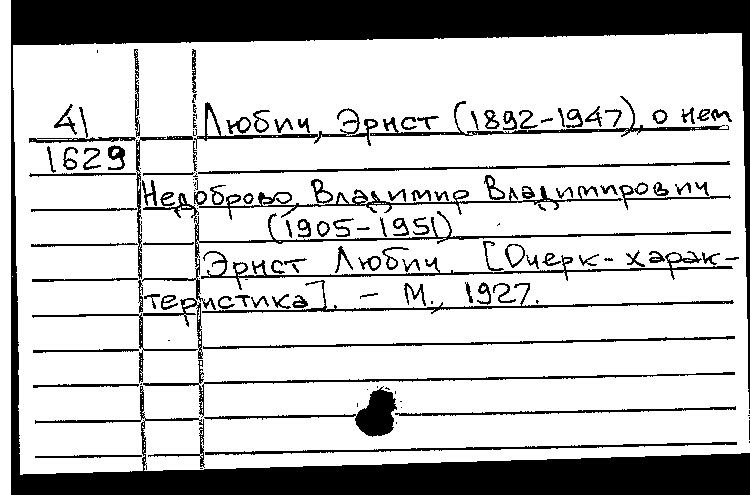 41
1629
Любич, Эрнст (1892-1947), о нем
Недоброво, Владимир Владимирович
(1905-1951)
Эрнст Любич. [Очерк-харак-
теристика]. - М., 1927.